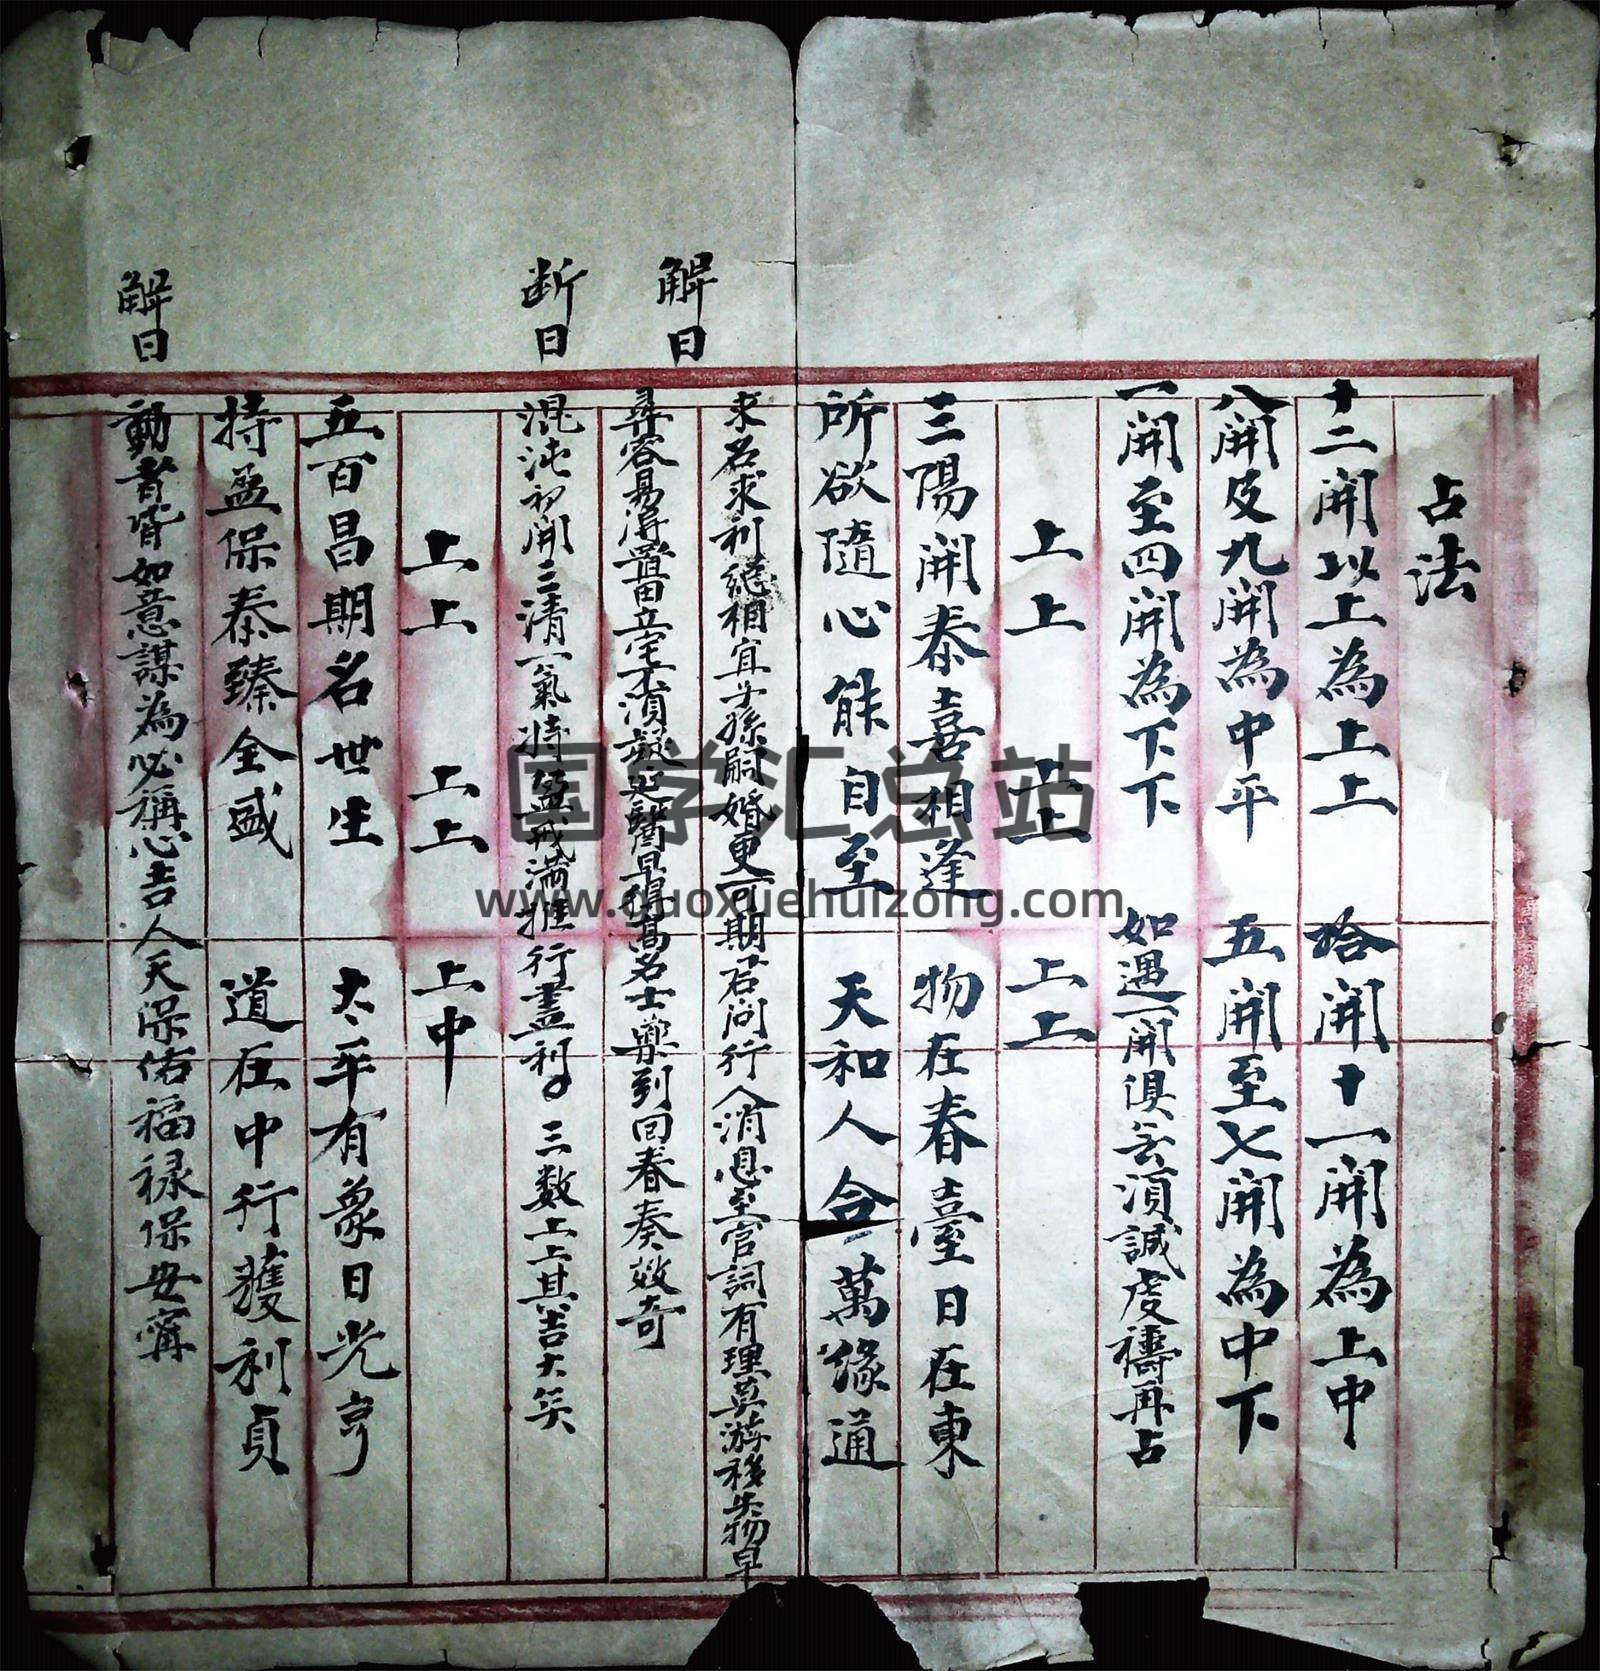 占法
十二開以上為上上 拾開十一開為上中
八開及九開為中平 五開至七開為中下
一開至四開為下下 如遇一開俱云須誠虔禱再占
上上 上上 上上
三陽開泰喜相逢 物在春臺日在東
所欲隨心能自至 天和人合萬緣通
解曰
求名求利總相宜子孫嗣婚更可期若问行人消息至官詞有理莫游移失物早
尋容易得置田立宅不須疑延醫早得高名士藥到回春奏效奇
断曰
混沌初開三清一氣持盈戒满推行盡利。三数上上其吉大矣
上上 上上 上中
五百昌期名世生 太平有象日光亨
持盈保泰臻全盛 道在中行獲利貞
解曰
動者皆如意謀為必稱心吉人天保佑福禄保安寧
国学汇总站
www.guoxuehuizong.com